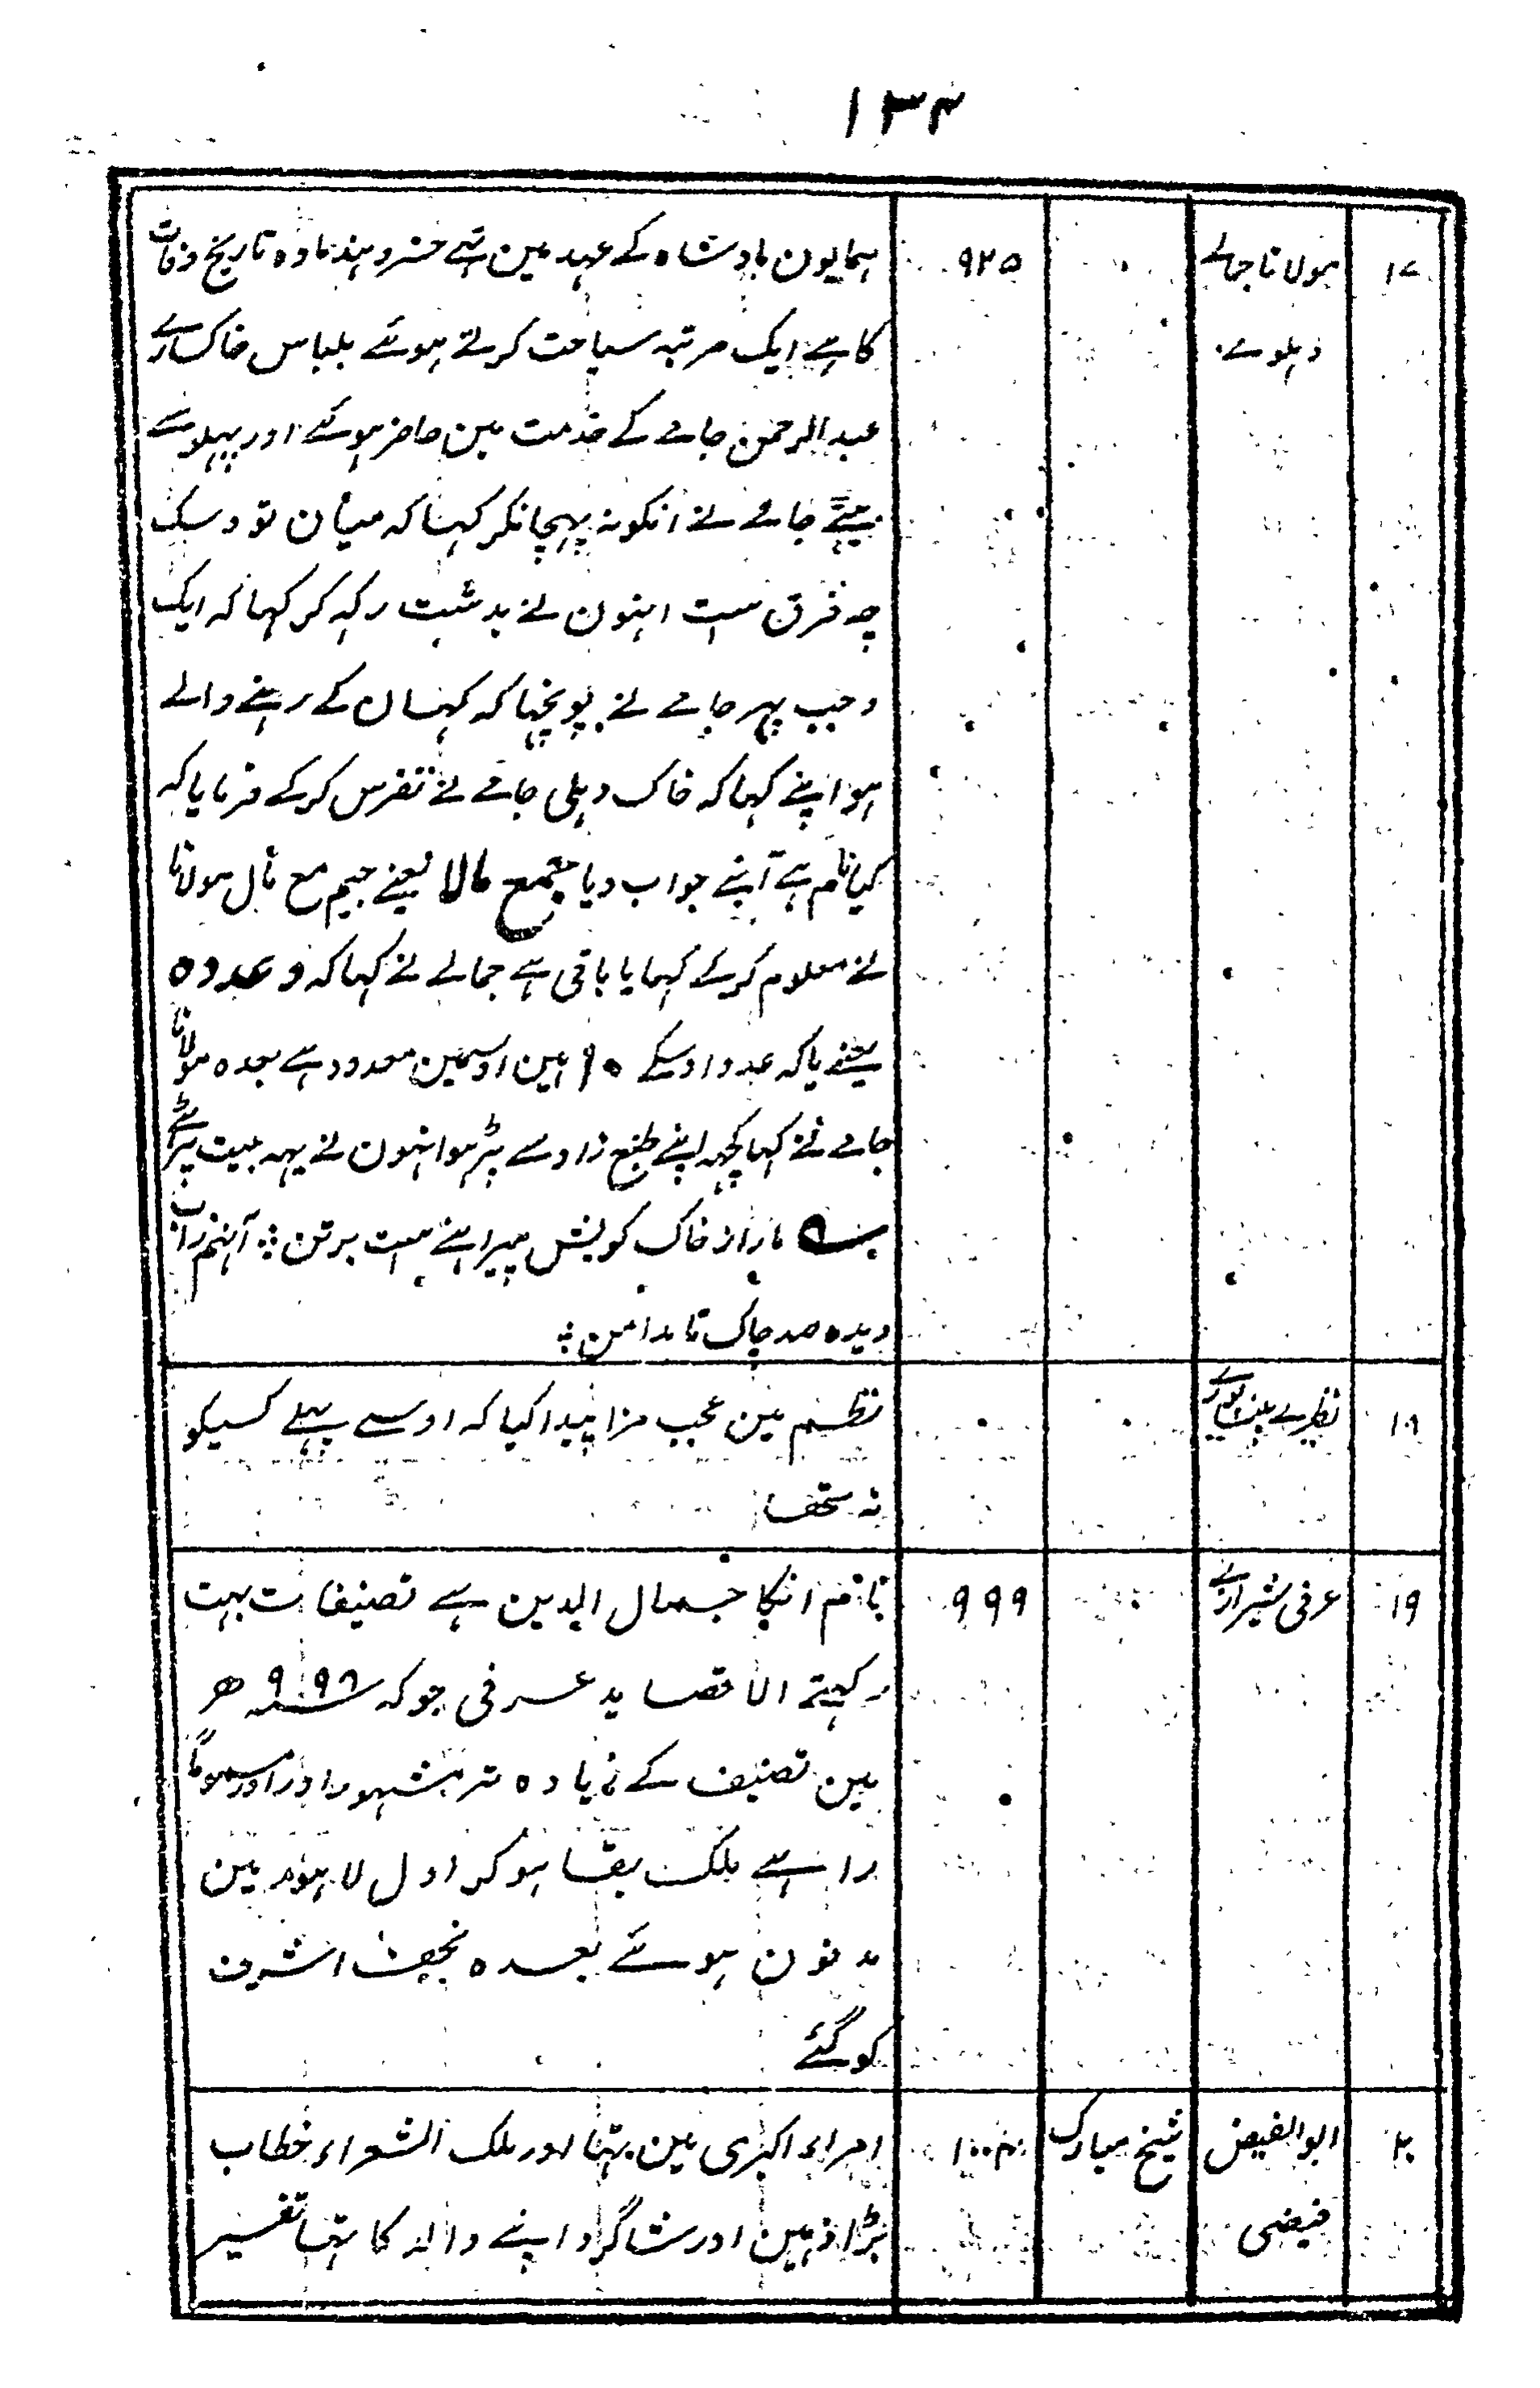 ۱۳۴
۱۷ مولانا جمالے ۹۲۵ ہمایون بادشاہ کے عہد مین تہے خسرو ہند مادہ تاریخ وفات
دہلوے کا ہے ایک مرتبہ سیاحت کرتے ہوئے بلباس خاکسارے
عبدالرحمن جامے کے خدمت مین حاضر ہوئے اور پہلو سے
بیٹہے جامے نے انکو نہ پہچانکر کہا کہ میان تو و سگ
چہ فرق ست انہون نے بدشت رکہہ کر کہا کہ ایک
وجب پہر جامے نے پونچہا کہ کہان کے رہنے والے
ہو اپنے کہا کہ خاک دہلی جامے نے تفرس کرکے فرمایا کہ
کیا نام ہے آپنے جواب دیا جمع مالا یعنے جیم مع مال مولانا
نے معلوم کرکے کہا یا باقی ہے جمالے نے کہا کہ و عددہ
یعنے یا کہ عدد اوسکے ۱۰ ہین اوسمین معدود ہے بعدہ مولانا
جامے نے کہا کچہہ اپنے طبع زاد سے پڑہو انہون نے یہہ بیت پڑہے
بیت مارا از خاک کویش پیراہنے ست برتن ؛ آنہم زآب
دیدہ صد چاک تا بدامن ؛
۱۸ نظیرے نیشاپورے نظم مین عجب مزا پیدا کیا کہ اوسے پہلے کسیکو
نہ تھا
۱۹ عرفی شیرازے ۹۹۹ نام انکا جمال الدین ہے تصنیفات بہت
رکہتے الا قصاید عرفی جو کہ سنہ ۹۹۸ ھ
مین تصنیف کے زیادہ تر مشہور اور مسموماً
راہے ملک بقا ہو کر اول لاہور مین
مدفون ہوئے بعدہ نجف اشرف
کو گئے
۲۰ ابوالفیض شیخ مبارک ۱۰۰۴ امراء اکبری مین تہا اور ملک الشعراء خطاب
فیضی بڑا ذہین اور شاگرد اپنے والد کا تہا تفسیر